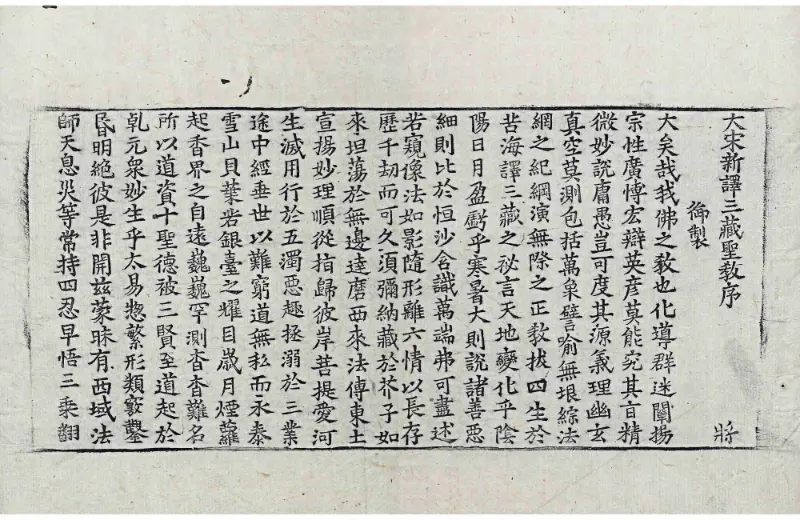 大宋新譯三藏聖教序 將
御製
大矣哉我佛之教也化導群迷闡揚
宗性廣博宏辯英彦莫能究其旨精
微妙說庸愚豈可度其源義理幽玄
真空莫測包括萬象譬喻無垠綜法
網之紀綱演無際之正教拔四生於
苦海譯三藏之祕言天地變化乎陰
陽日月盈虧乎寒暑大則說諸善惡
細則比於恒沙含識萬端弗可盡述
若窺像法如影隨形離六情以長存
歷千劫而可久須彌納藏於芥子如
來坦蕩於無邊達磨西來法傳東土
宣揚妙理順從指歸彼岸菩提愛河
生滅用行於五濁惡趣拯溺於三業
途中經垂世以難窮道無私而永泰
雪山貝葉若銀臺之耀目歲月煙蘿
起香界之自遠巍巍罕測杳杳難名
所以道資十聖德被三賢至道起於
乹元衆妙生乎太易惣繁形類竅鑿
昏明絶彼是非開茲蒙昧有西域法
師天息災等常持四忍早悟三乘翻